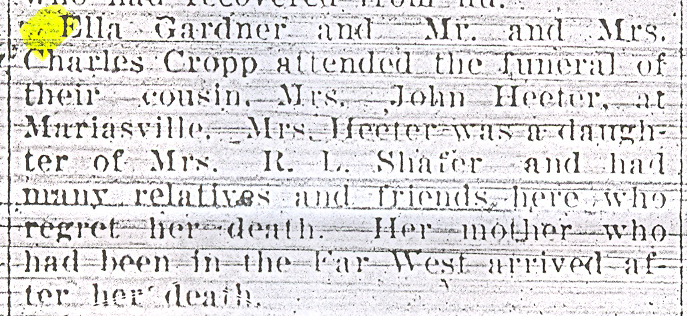 who had recovered from
Ella Gardner and Mr. and Mrs.
Charles Cropp attended the funeral of
their cousin, Mrs. John Heeter, at
Mariasville. Mrs. Heeter was a daugh-
ter of Mrs. R. L. Shafer and had
many relatives and friends here who
regret her death. Her mother who
had been in the Far West arrived af-
ter her death.